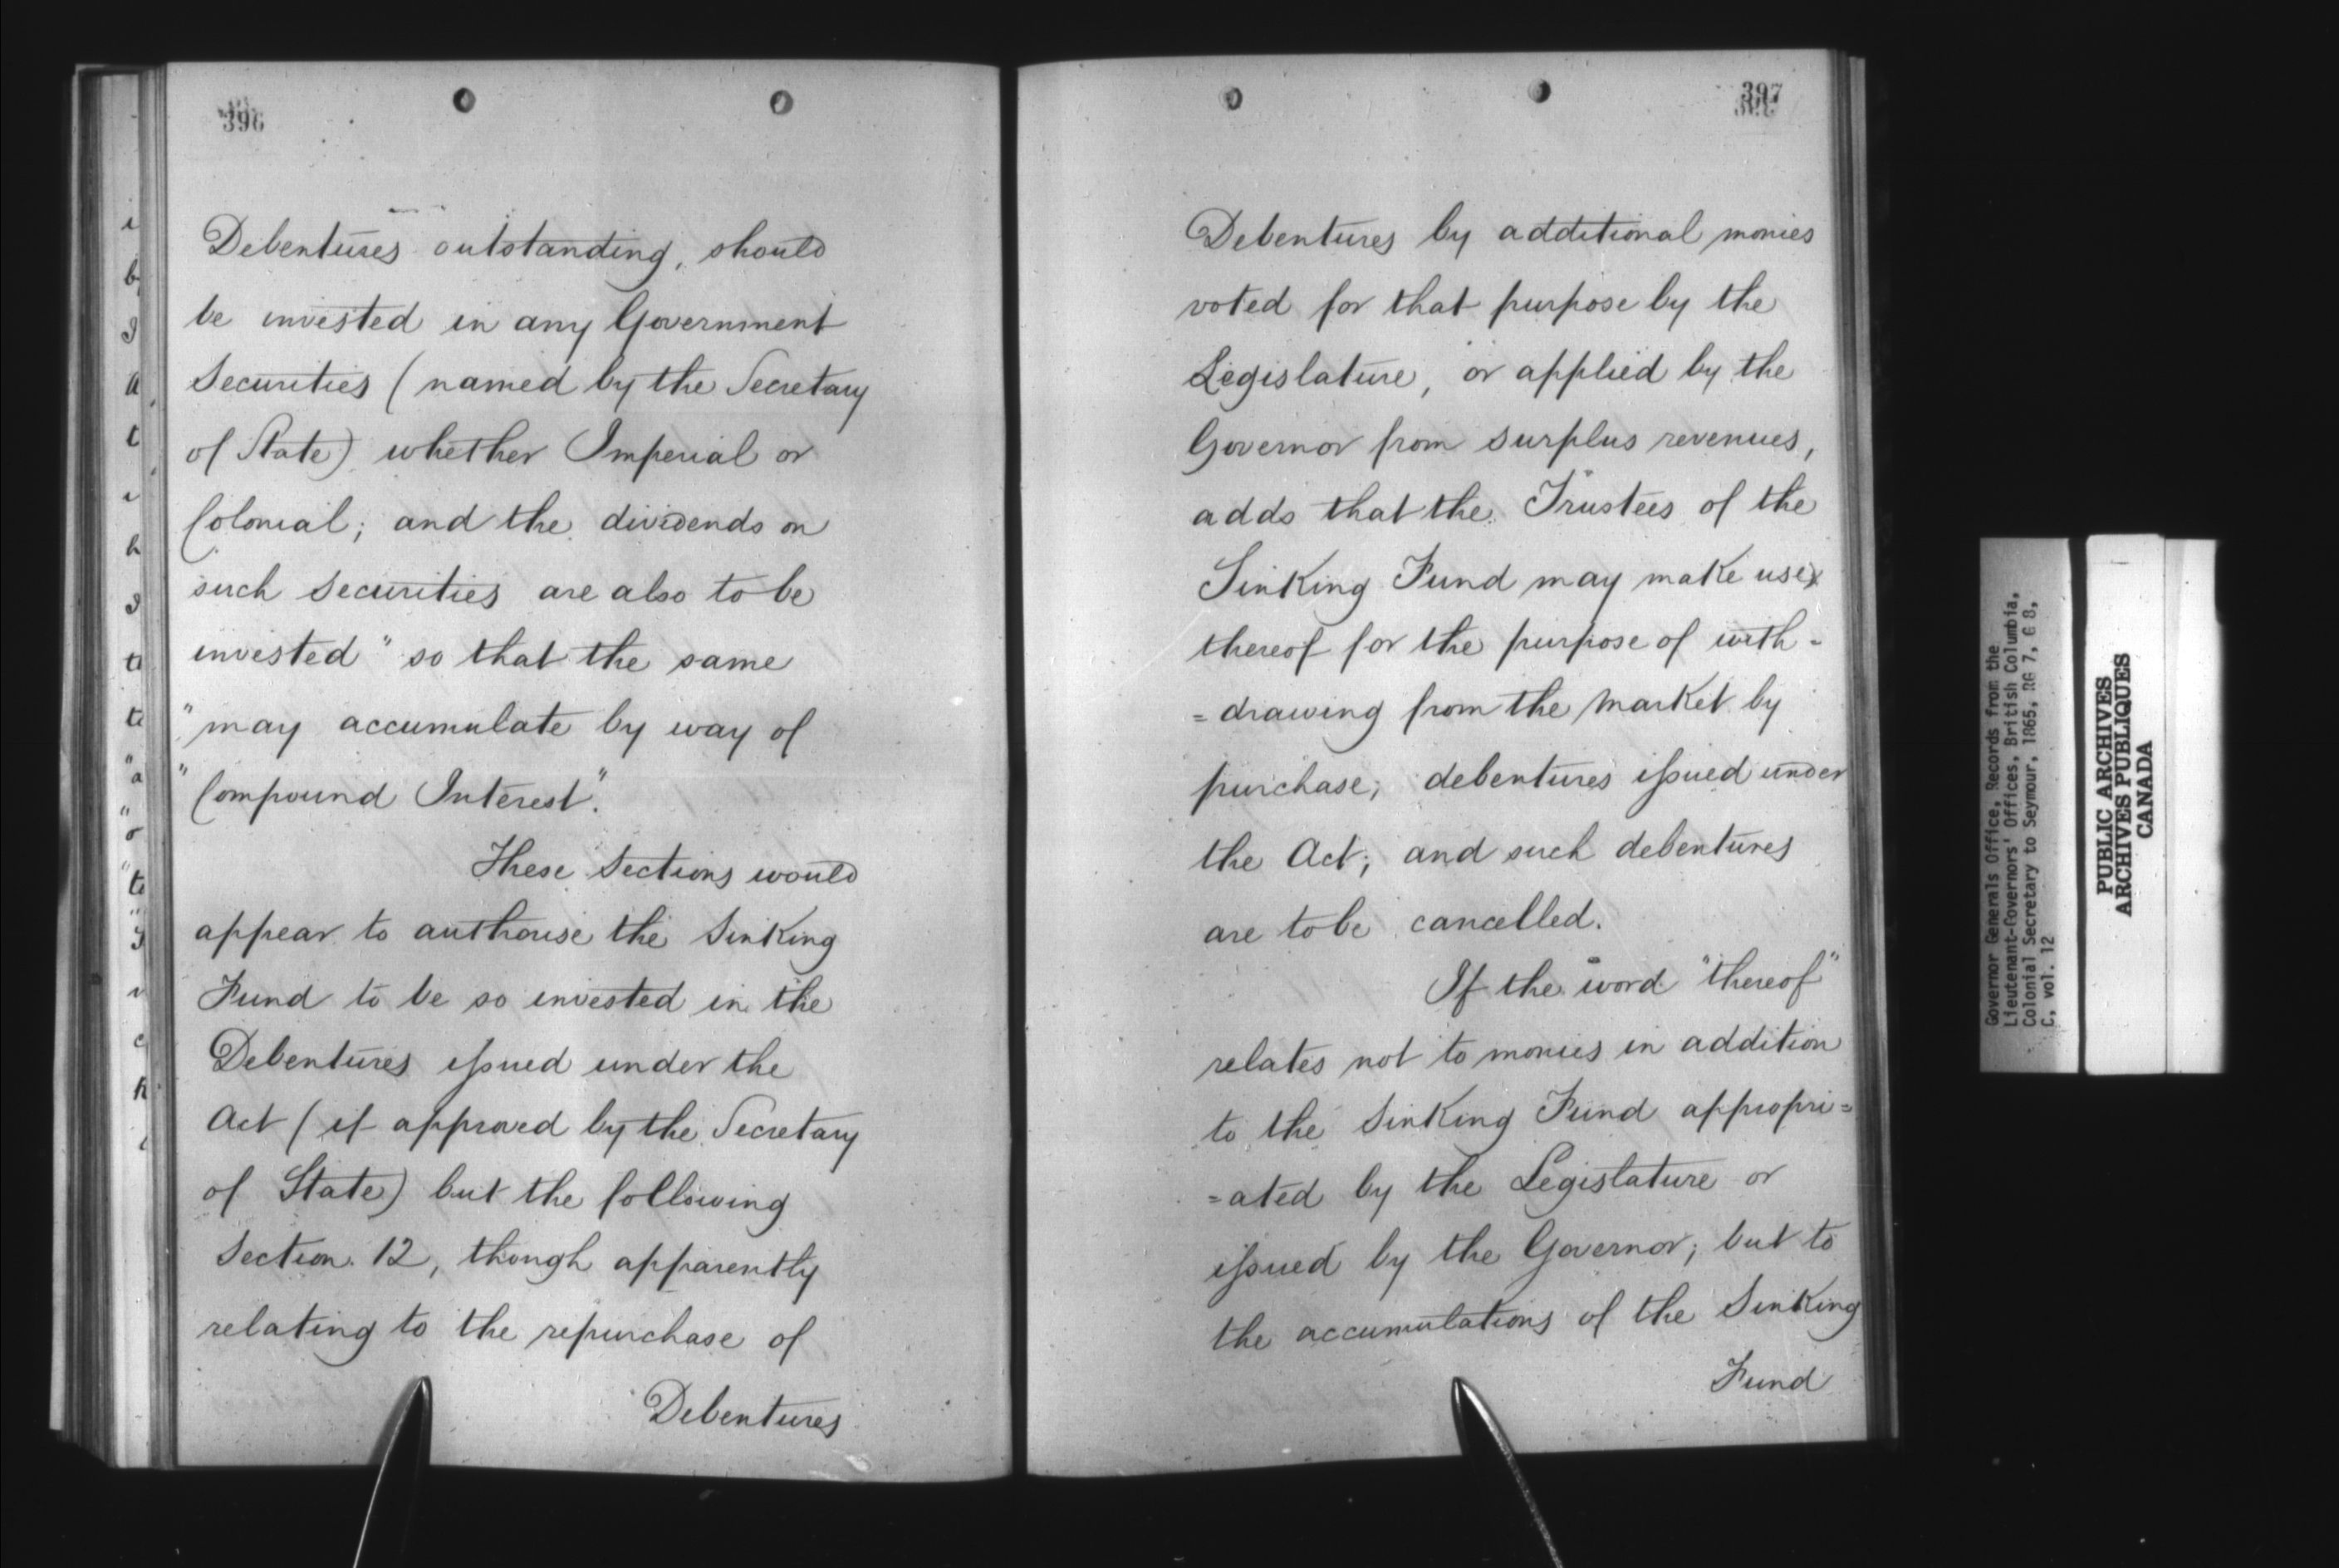 396
Debentures outstanding, should
be invested in any Government
Securities (named by the Secretary
of State) whether Imperial or
Colonial; and the dividends on
such securities are also to be
invested "so that the same
"may accumulate by way of
"Compound Interest".
These Sections would
appear to authorise the Sinking
Fund to be so invested in the
Debentures issued under the
Act (if approved by the Secretary
of State) but the following
Section 12, though apparently
relating to the repurchase of
Debentures
397
Debentures by additional monies
voted for that purpose by the
Legislature, or applied by the
Governor from surplus revenues,
adds that the Trustees of the
Sinking Fund may make use
thereof for the purpose of with=
=drawing from the market by
purchase, debentures issued under
the Act; and such debentures
are to be cancelled.
If the word "thereof"
relates not to monies in addition
to the Sinking Fund appropri=
=ated by the Legislature or
issued by the Governor; but to
the accumulations of the Sinking
Fund
Governor Generals Office, Records from the
Lieutenant-Governors' Offices, British Columbia,
Colonial Secretary to Seymour, 1865, RG 7, G 8,
C, vol. 12
PUBLIC ARCHIVES
ARCHIVES PUBLIQUES
CANADA